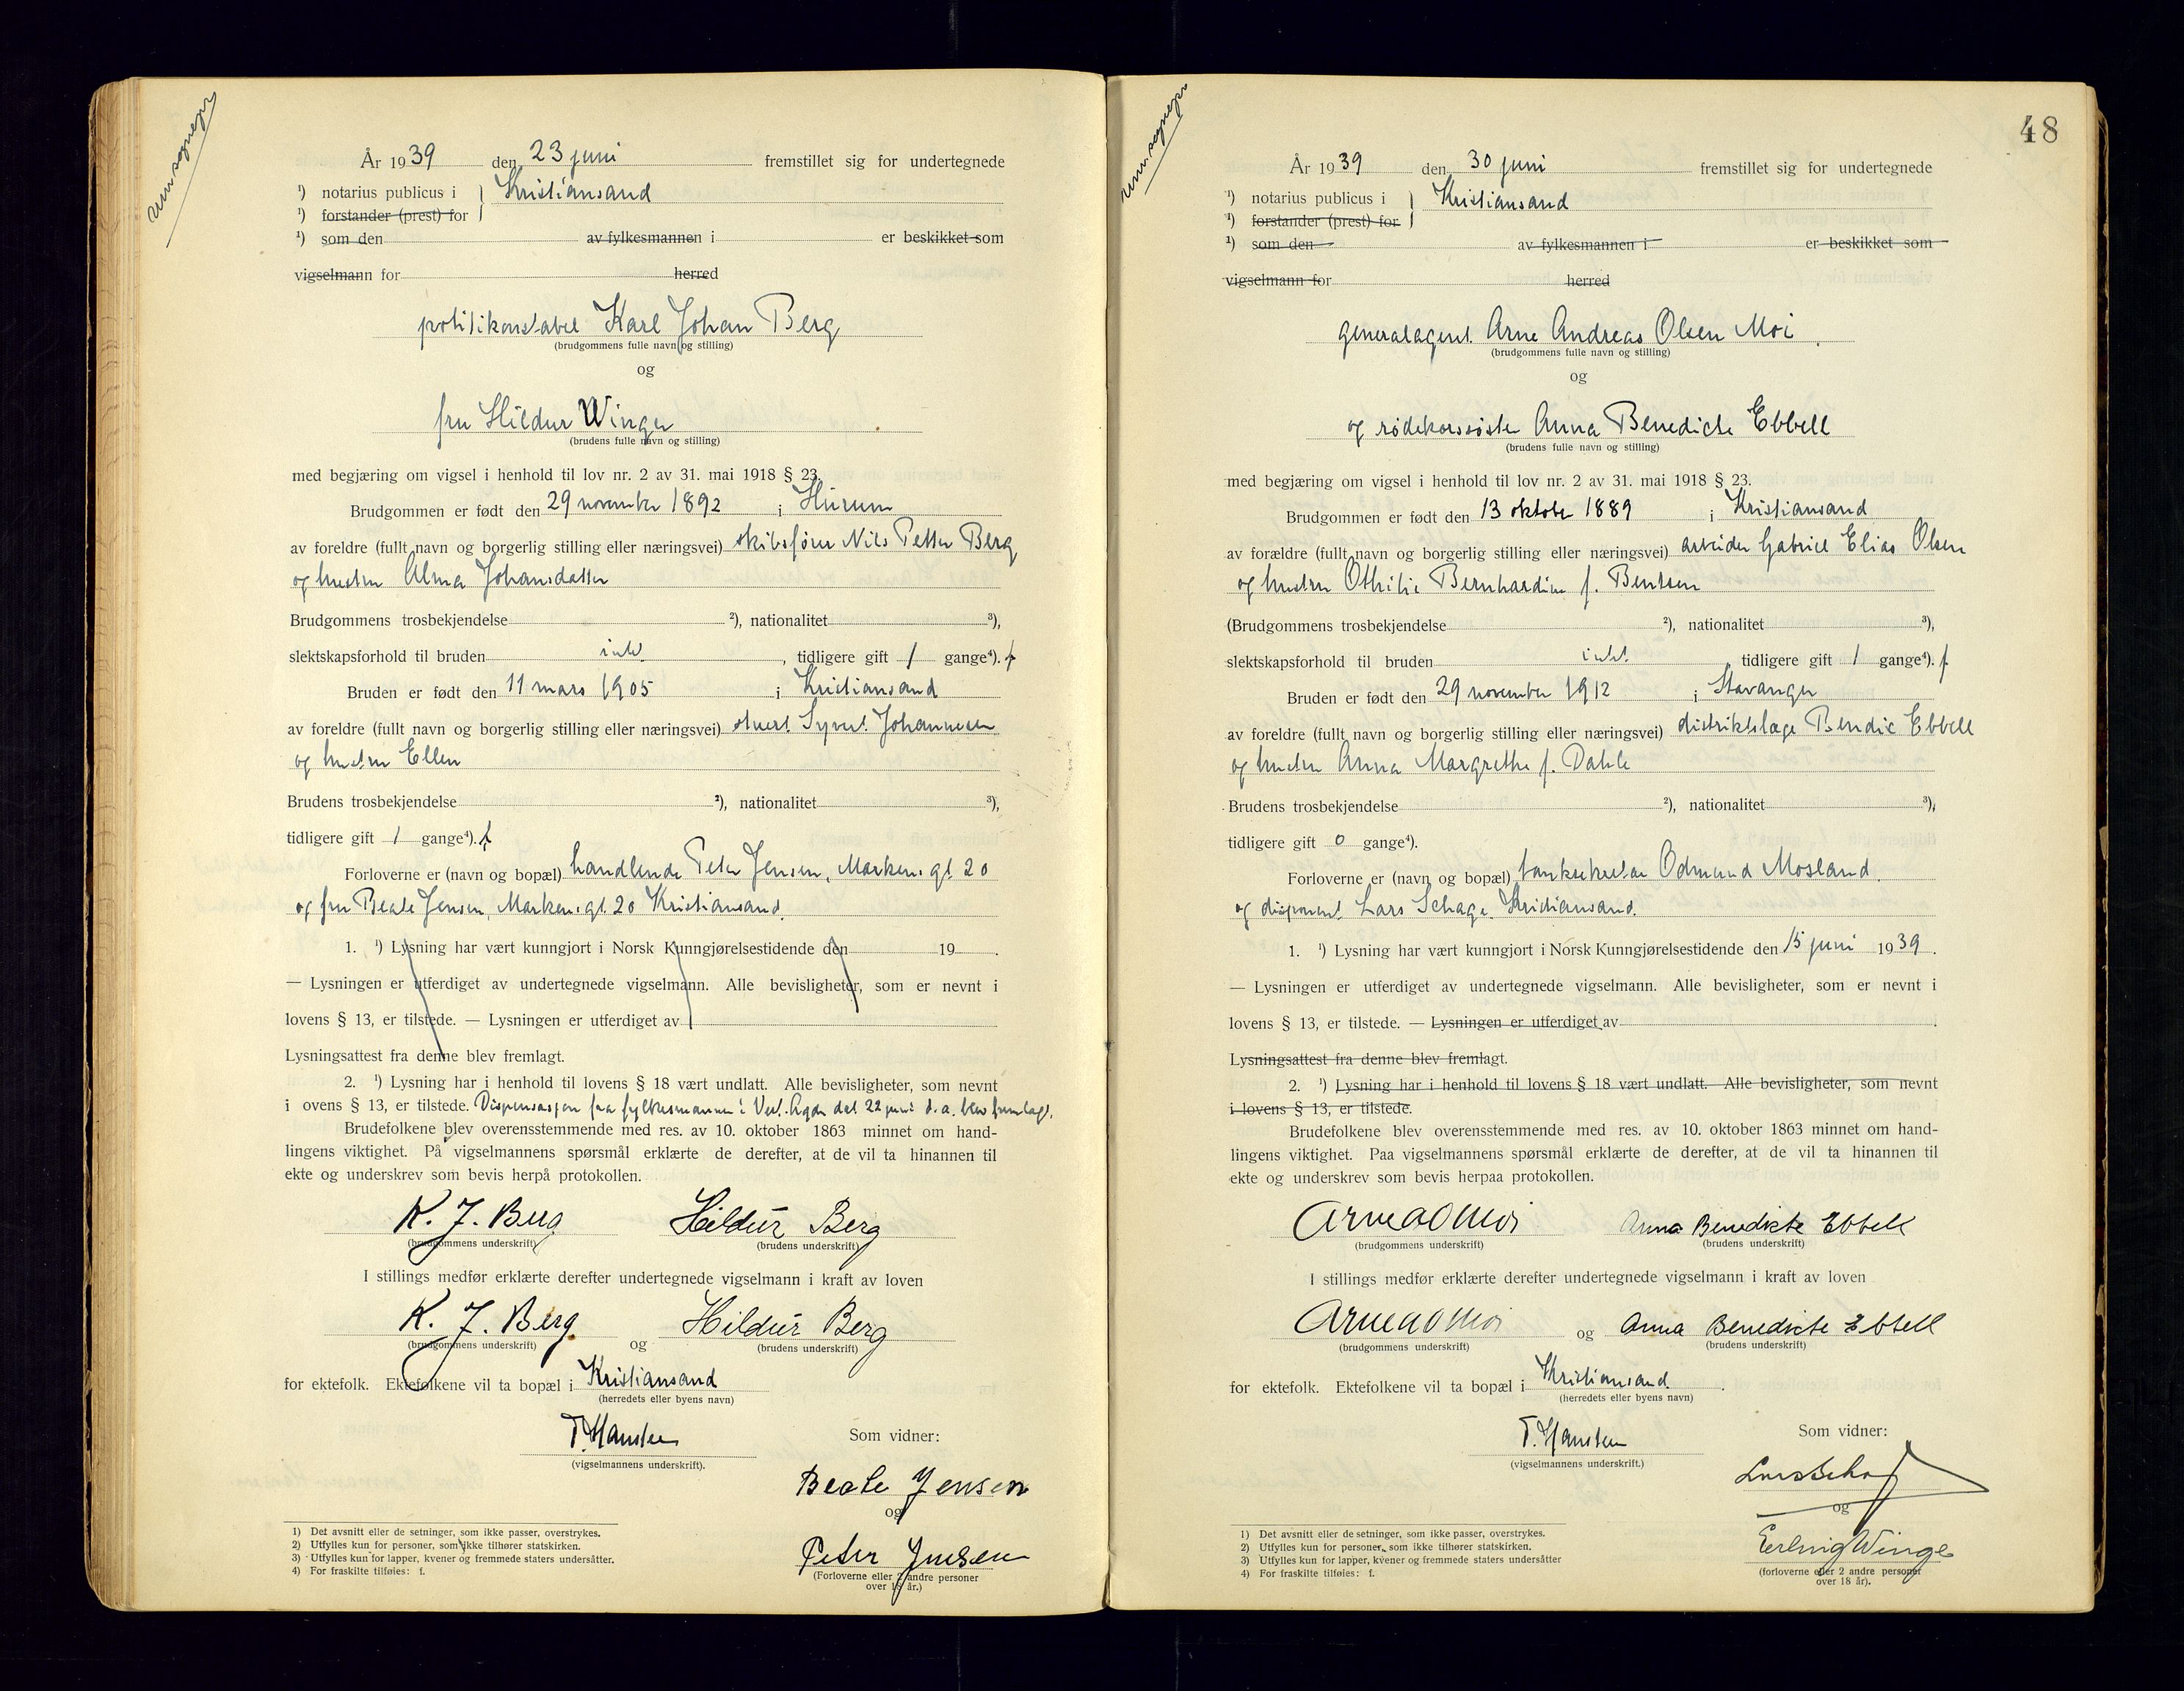 År 1939 den 23 juni fremstillet sig for undertegnede
¹) notarius publicus i } Kristiansand
¹) forstander (prest) for
¹) som den av fylkesmannen i er beskikket som
vigselmann for herred
politikonstabel Karl Johan Berg
(brudgommens fulle navn og stilling)
og
fru Hildur Winge
(brudens fulle navn og stilling)
med begjæring om vigsel i henhold til lov nr. 2 av 31. mai 1918 § 23.
Brudgommen er født den 29 november 1892 i Hurum
av foreldre (fullt navn og borgerlig stilling eller næringsvei) skibsfører Nils Petter Berg
og hustru Alma Johansdatter
Brudgommens trosbekjendelse ²), nationalitet ³),
slektskapsforhold til bruden intet, tidligere gift 1 gange⁴). f
Bruden er født den 11 mars 1905 i Kristiansand
av foreldre (fullt navn og borgerlig stilling eller næringsvei) stuert Syvert Johannesen
og hustru Ellen
Brudens trosbekjendelse ²), nationalitet ³),
tidligere gift 1 gange⁴). f
Forloverne er (navn og bopæl) handlende Peter Jensen, Markens gt 20
og fru Beate Jensen, Markens gt. 20 Kristiansand.
1. ¹) Lysning har vært kunngjort i Norsk Kunngjørelsestidende den 19 .
— Lysningen er utferdiget av undertegnede vigselmann. Alle bevisligheter, som er nevnt i
lovens § 13, er tilstede. — Lysningen er utferdiget av
Lysningsattest fra denne blev fremlagt.
2. ¹) Lysning har i henhold til lovens § 18 vært undlatt. Alle bevisligheter, som nevnt
i ovens § 13, er tilstede. Dispensasjon fra fylkesmannen i Vest-Agder dat 22 juni d.a. blev fremlagt.
Brudefolkene blev overensstemmende med res. av 10. oktober 1863 minnet om hand-
lingens viktighet. På vigselmannens spørsmål erklærte de derefter, at de vil ta hinannen til
ekte og underskrev som bevis herpå protokollen.
K. J. Berg Hildur Berg
(brudgommens underskrift) (brudens underskrift)
I stillings medfør erklærte derefter undertegnede vigselmann i kraft av loven
K. J. Berg og Hildur Berg
(brudgommens underskrift) (brudens underskrift)
for ektefolk. Ektefolkene vil ta bopæl i Kristiansand
(herredets eller byens navn)
T. Hansten
(vigselmannens underskrift).
Som vidner:
Beate Jensen
og
Peter Jensen
(Forloverne eller 2 andre personer
over 18 år.)
1) Det avsnitt eller de setninger, som ikke passer, overstrykes.
2) Utfylles kun for personer, som ikke tilhører statskirken.
3) Utfylles kun for lapper, kvener og fremmede staters undersåtter.
4) For fraskilte tilføies: f.
48
År 1939 den 30 juni fremstillet sig for undertegnede
¹) notarius publicus i } Kristiansand
¹) forstander (prest) for
¹) som den av fylkesmannen i er beskikket som
vigselmann for herred
generalagent Arne Andreas Olsen Moi
(brudgommens fulle navn og stilling)
og
og rødekorssøster Anna Benedicte Ebbell
(brudens fulle navn og stilling)
med begjæring om vigsel i henhold til lov nr. 2 av 31. mai 1918 § 23.
Brudgommen er født den 13 oktober 1889 i Kristiansand
av forældre (fullt navn og borgerlig stilling eller næringsvei) arbeider Gabriel Elias Olsen
og hustru Othilie Bernhardine f. Bentsen
(Brudgommens trosbekjendelse ²), nationalitet ³),
slektskapsforhold til bruden intet, tidligere gift 1 gange⁴). f.
Bruden er født den 29 november 1912 i Stavanger
av foreldre (fullt navn og borgerlig stilling eller næringsvei) distriktslæge Bendix Ebbell
og hustru Anna Margrethe f. Dahle
Brudens trosbekjendelse ²), nationalitet ³),
tidligere gift 0 gange⁴).
Forloverne er (navn og bopæl) banksekretær Odmund Mosland
og disponent Lars Schage, Kristiansand.
1. ¹) Lysning har vært kunngjort i Norsk Kunngjørelsestidende den 15 juni 1939.
— Lysningen er utferdiget av undertegnede vigselmann. Alle bevisligheter, som er nevnt i
lovens § 13, er tilstede. — Lysningen er utferdiget av .
Lysningsattest fra denne blev fremlagt.
2. ¹) Lysning har i henhold til lovens § 18 vært undlatt. Alle bevisligheter, som nevnt
i lovens § 13, er tilstede.
Brudefolkene blev overensstemmende med res. av 10. oktober 1863 minnet om hand-
lingens viktighet. Paa vigselmannens spørsmål erklærte de derefter, at de vil ta hinannen til
ekte og underskrev som bevis herpaa protokollen.
Arne A O Moi Anna Benedicte Ebbell
(brudgommens underskrift) (brudens underskrift)
I stillings medfør erklærte derefter undertegnede vigselmann i kraft av loven
Arne A O Moi og Anna Benedicte Ebbell
(brudgommens underskrift) (brudens underskrift)
for ektefolk. Ektefolkene vil ta bopæl i Kristiansand.
(herredets eller byens navn)
T. Hansten
(vigselmannens underskrift.)
Som vidner:
og
Erling Winge
(forloverne eller 2 andre personer
over 18 år).
1) Det avsnitt eller de setninger, som ikke passer, overstrykes.
2) Utfylles kun for personer, som ikke tilhører statskirken.
3) Utfylles kun for lapper, kvener og fremmede staters undersåtter
4) For fraskilte tilføies: f.